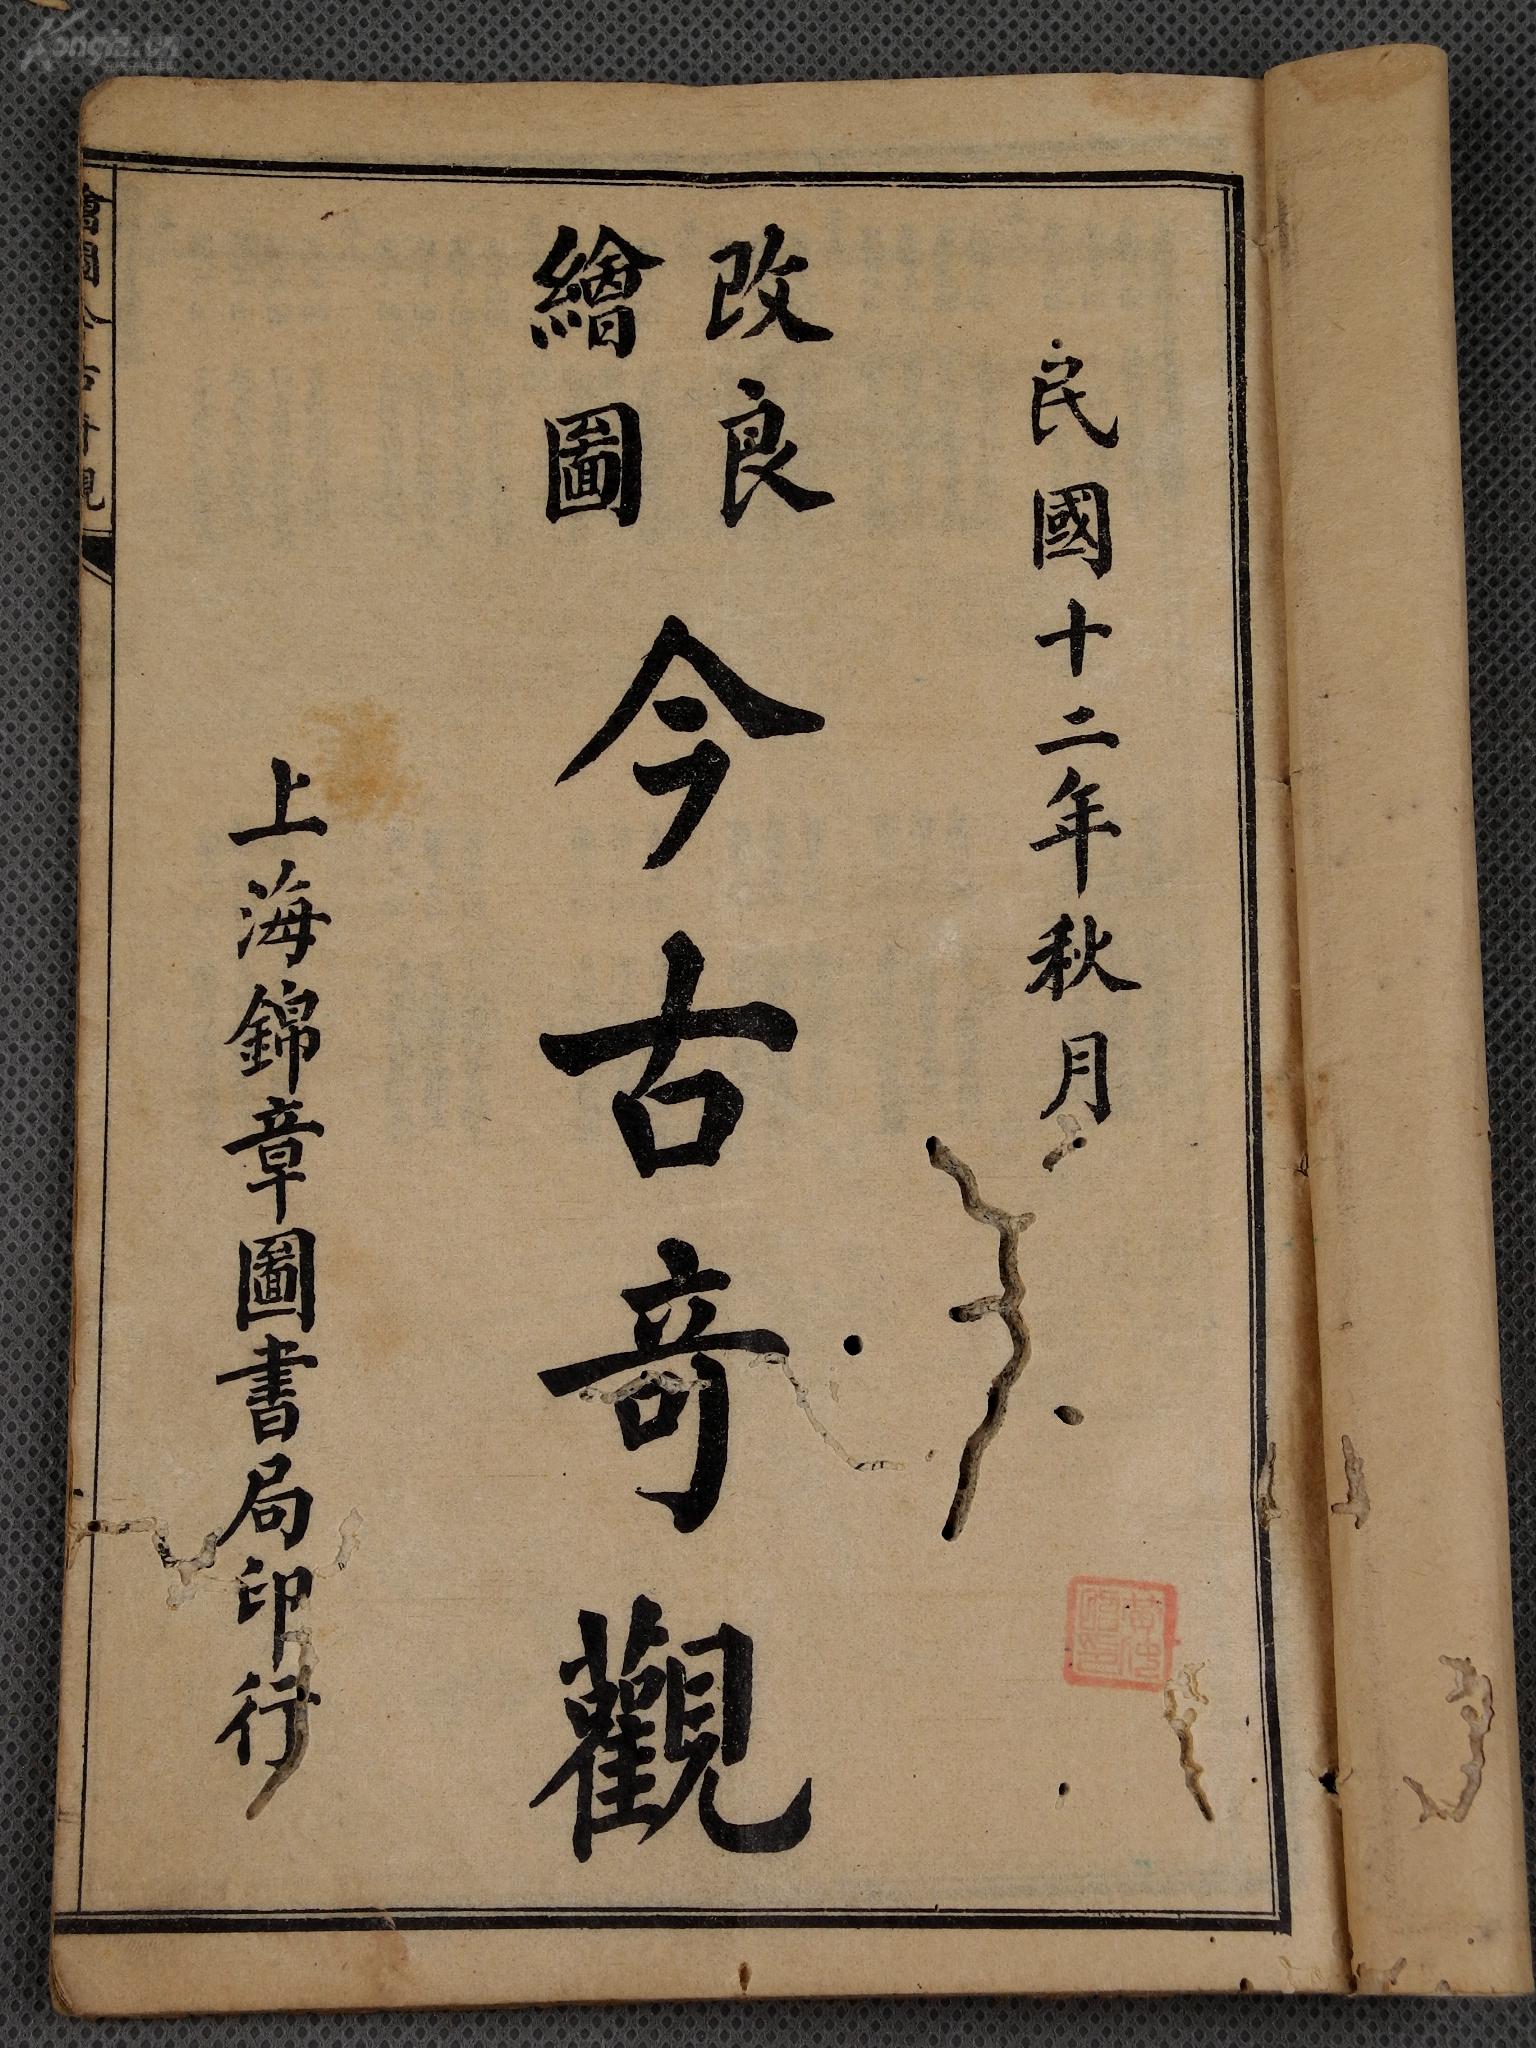 民國十二年秋月
改良
繪圖
今古奇觀
上海錦章圖書局印行
繪圖今古奇觀
Kongfz.cn